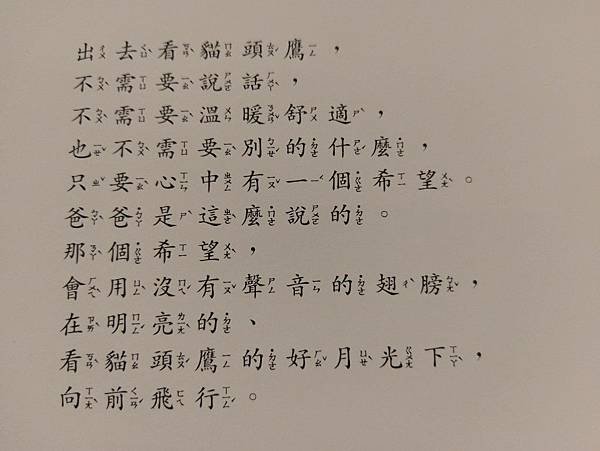 出去看貓頭鷹，
不需要說話，
不需要溫暖舒適，
也不需要別的什麼，
只要心中有一個希望。
爸爸是這麼說的。
那個希望，
會用沒有聲音的翅膀，
在明亮的、
看貓頭鷹的好月光下，
向前飛行。